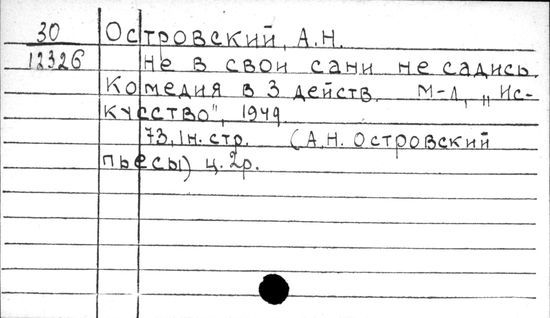 30 Островский, А.Н.
12326 Не в свои сани не садись.
Комедия в 3 действ. М-Л, „Ис-
кусство", 1949
73, 1н. стр. (А.Н. Островский
пьесы) ц. 2р.